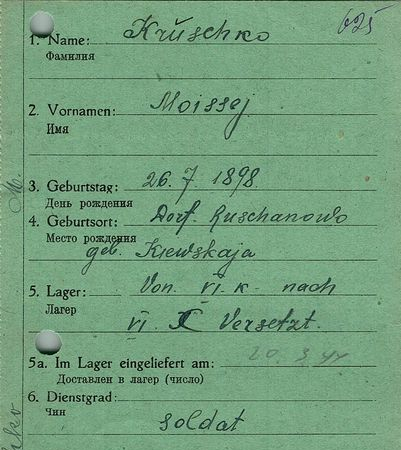 625
1. Name: Kruschko
Фамилия
2. Vornamen: Moissej
Имя
3. Geburtstag: 26. 7. 1898.
День рождения
4. Geburtsort: Dorf. Ruschanowo
Место рождения
geb. Kiewskaja
5. Lager: Von VI. K - nach
Лагерь
VI. Versetzt.
5a. Im Lager eingeliefert am: 20. 3. 44
Доставлен в лагерь (число)
6. Dienstgrad:
Чин
Soldat